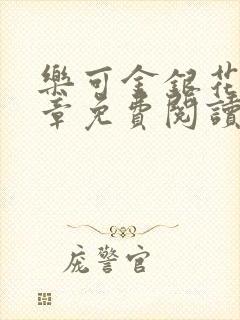 樂可金銀花
章免費閱讀
庞警官